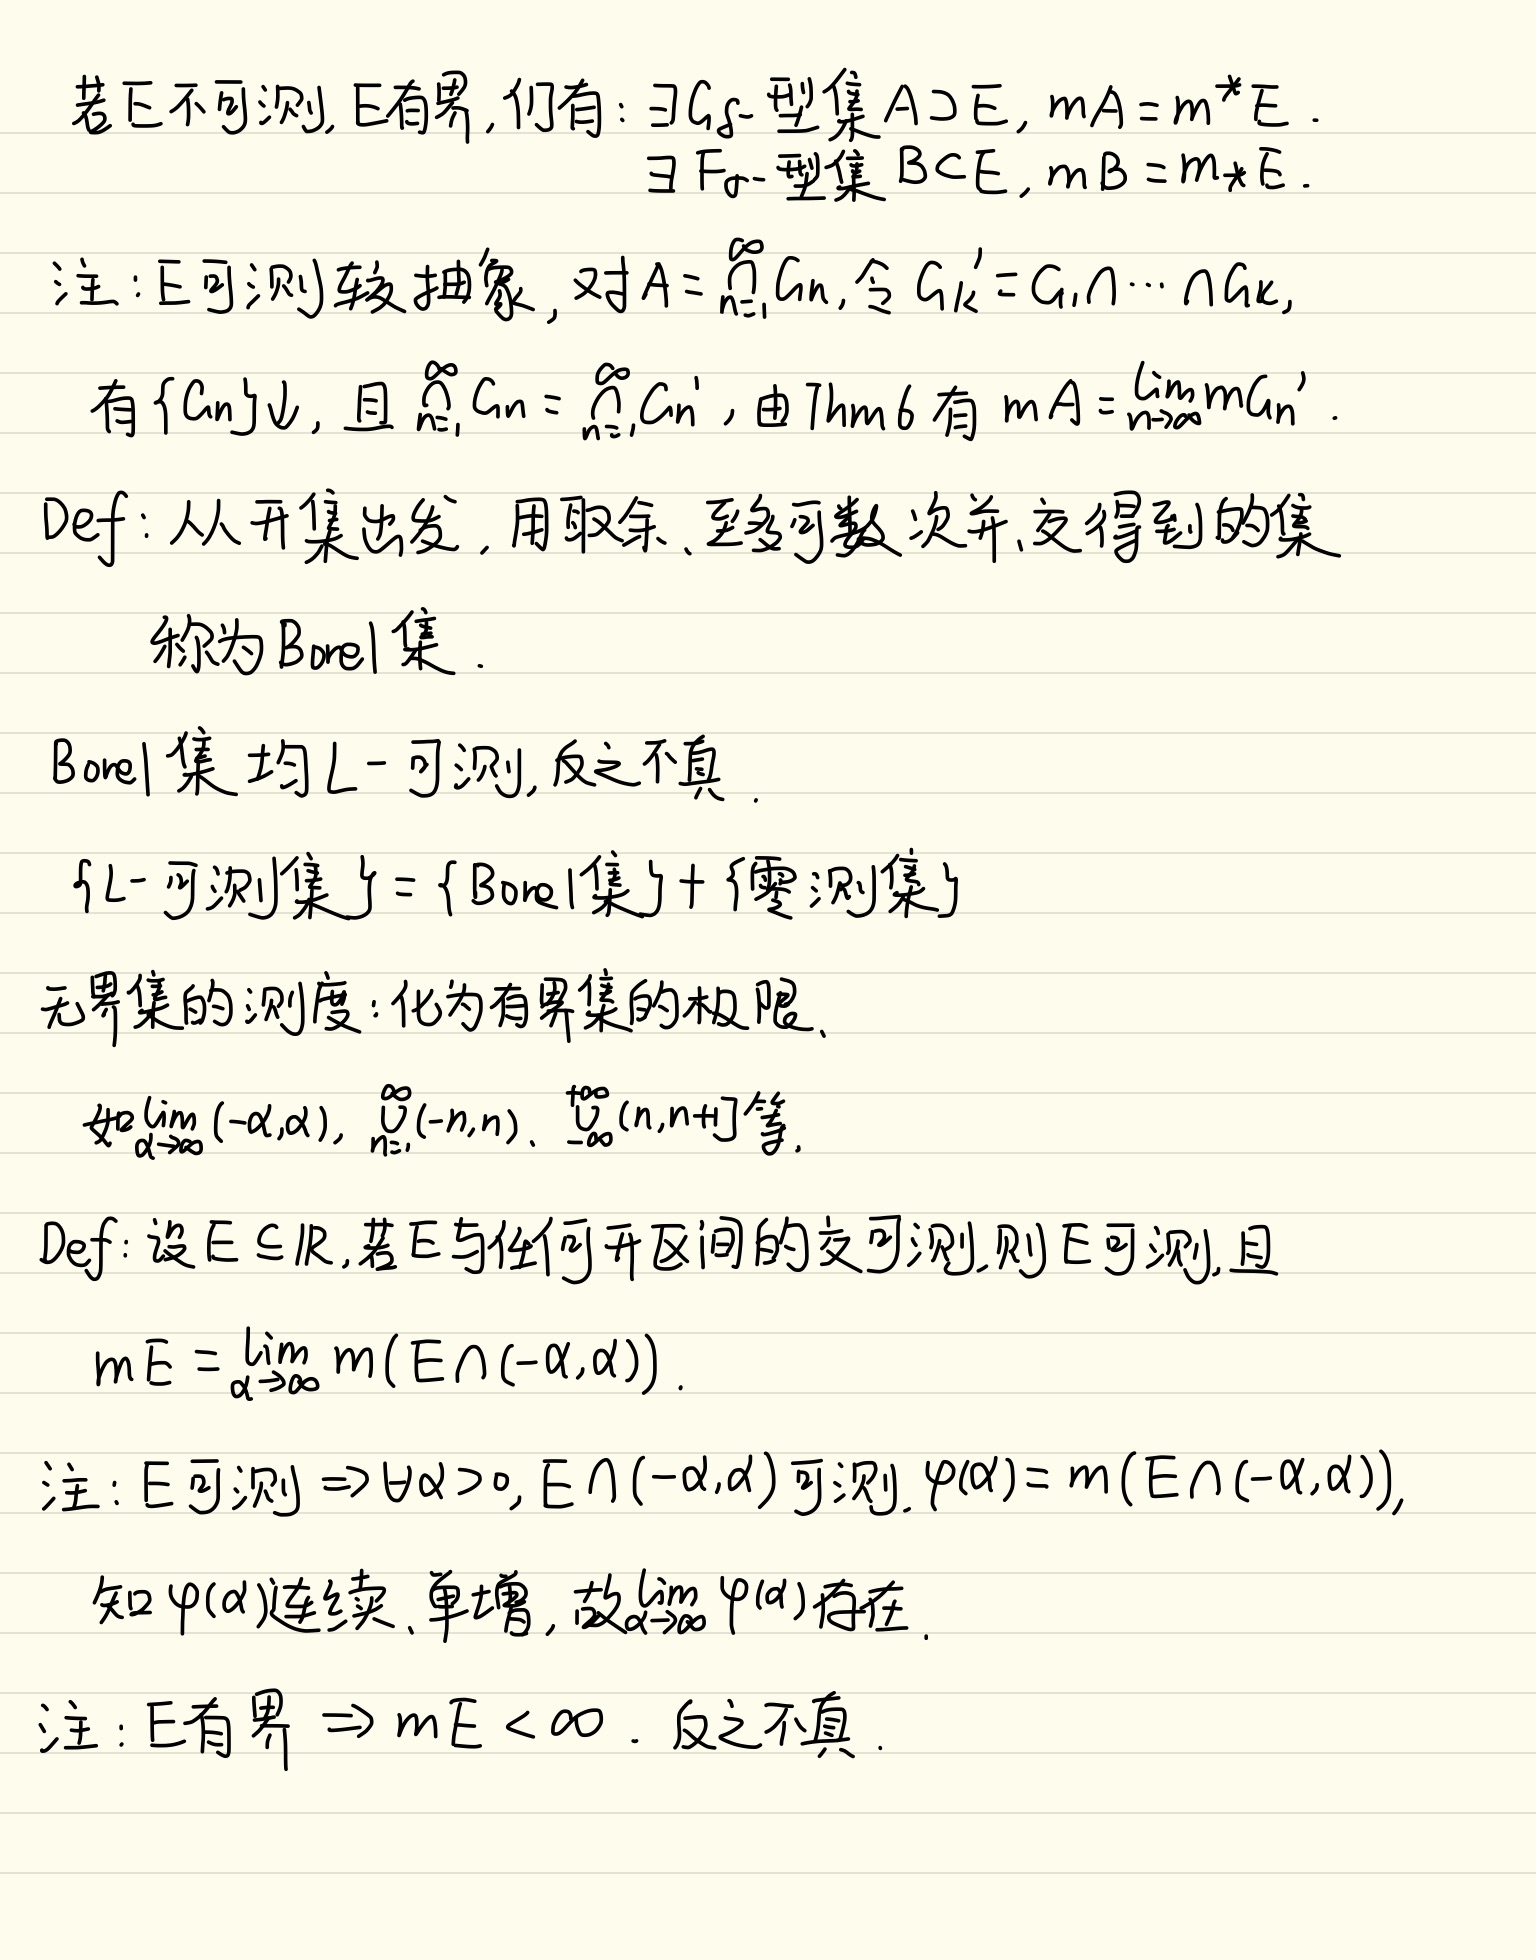 若E不可测,E有界,仍有:∃Gδ-型集A⊃E, mA=m*E.
∃Fσ-型集B⊂E, mB=m_*E.
注:E可测较抽象,对A=∩_{n=1}^{∞}Gn,令Gk'=G₁∩…∩Gk,
有{Gn}↓,且∩_{n=1}^{∞}Gn=∩_{n=1}^{∞}Gn',由Thm6有 mA=lim_{n→∞}mGn'.
Def:从开集出发,用取余、至多可数次并、交得到的集
称为Borel集.
Borel集均L-可测,反之不真.
{L-可测集}={Borel集}+{零测集}
无界集的测度:化为有界集的极限、
如lim_{α→∞}(-α,α), ∪_{n=1}^{∞}(-n,n)、∪_{-∞}^{+∞}(n,n+1]等.
Def:设E⊆ℝ,若E与任何开区间的交可测,则E可测,且
mE=lim_{α→∞}m(E∩(-α,α)).
注:E可测⇒∀α>0,E∩(-α,α)可测.φ(α)=m(E∩(-α,α)),
知φ(α)连续、单增,故lim_{α→∞}φ(α)存在.
注:E有界⇒mE<∞.反之不真.